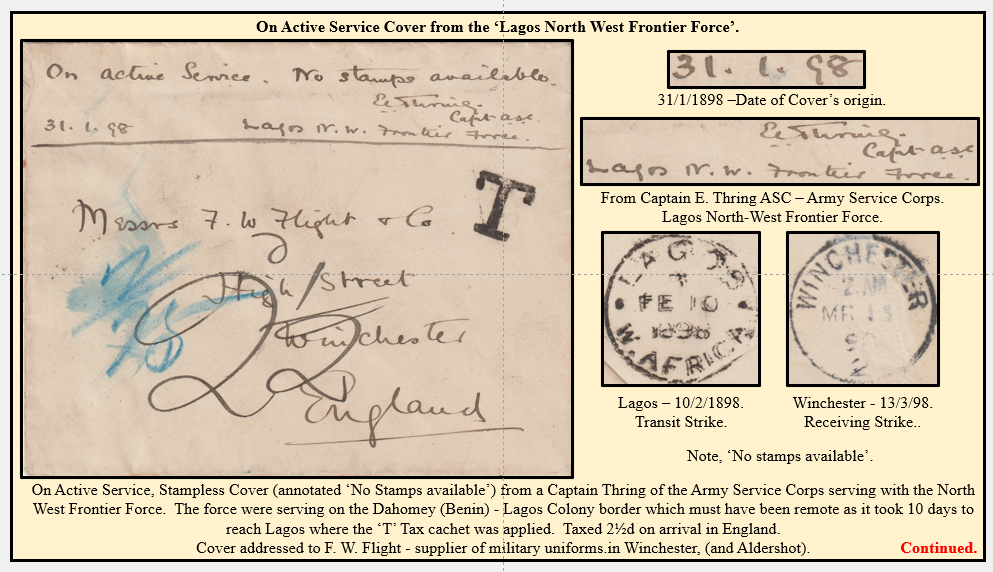 On Active Service Cover from the ‘Lagos North West Frontier Force’.
On active Service. No stamps available.
E. Thring.
Capt asc.
31. 1. 98 Lagos N. W. Frontier Force.
T
Messrs F. W Flight & Co
High Street
Winchester
England
31. 1. 98
31/1/1898 –Date of Cover’s origin.
E. Thring.
Capt asc
Lagos N. W. Frontier Force.
From Captain E. Thring ASC – Army Service Corps.
Lagos North-West Frontier Force.
LAGOS
FE 10
1898
W. AFRICA
WINCHESTER
2. AM
MR 13
Lagos – 10/2/1898.
Transit Strike.
Winchester - 13/3/98.
Receiving Strike..
Note, ‘No stamps available’.
On Active Service, Stampless Cover (annotated ‘No Stamps available’) from a Captain Thring of the Army Service Corps serving with the North
West Frontier Force. The force were serving on the Dahomey (Benin) - Lagos Colony border which must have been remote as it took 10 days to
reach Lagos where the ‘T’ Tax cachet was applied. Taxed 2½d on arrival in England.
Cover addressed to F. W. Flight - supplier of military uniforms.in Winchester, (and Aldershot).
Continued.